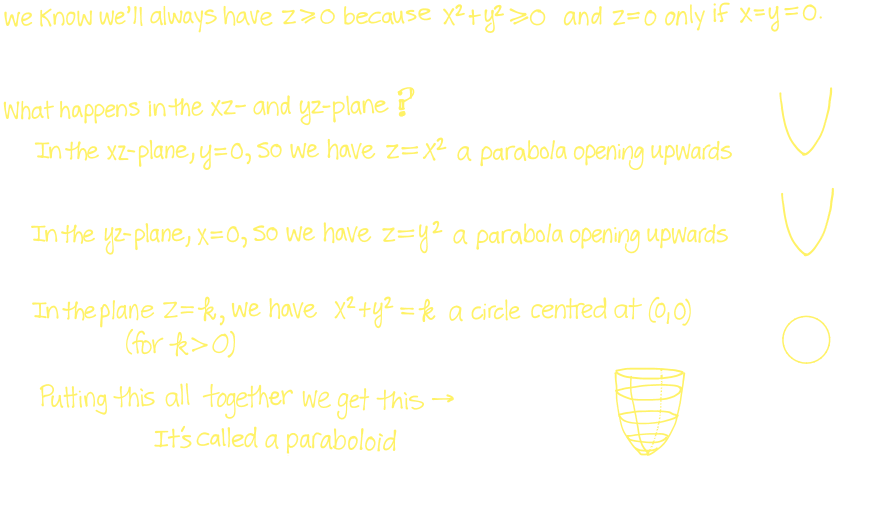 we know we'll always have z⩾0 because x²+y²⩾0 and z=0 only if x=y=0.
What happens in the xz- and yz-plane?
In the xz-plane, y=0, so we have z=x² a parabola opening upwards
In the yz-plane, x=0, so we have z=y² a parabola opening upwards
In the plane z=k, we have x²+y²=k a circle centred at (0,0)
(for k>0)
Putting this all together we get this →
It's called a paraboloid